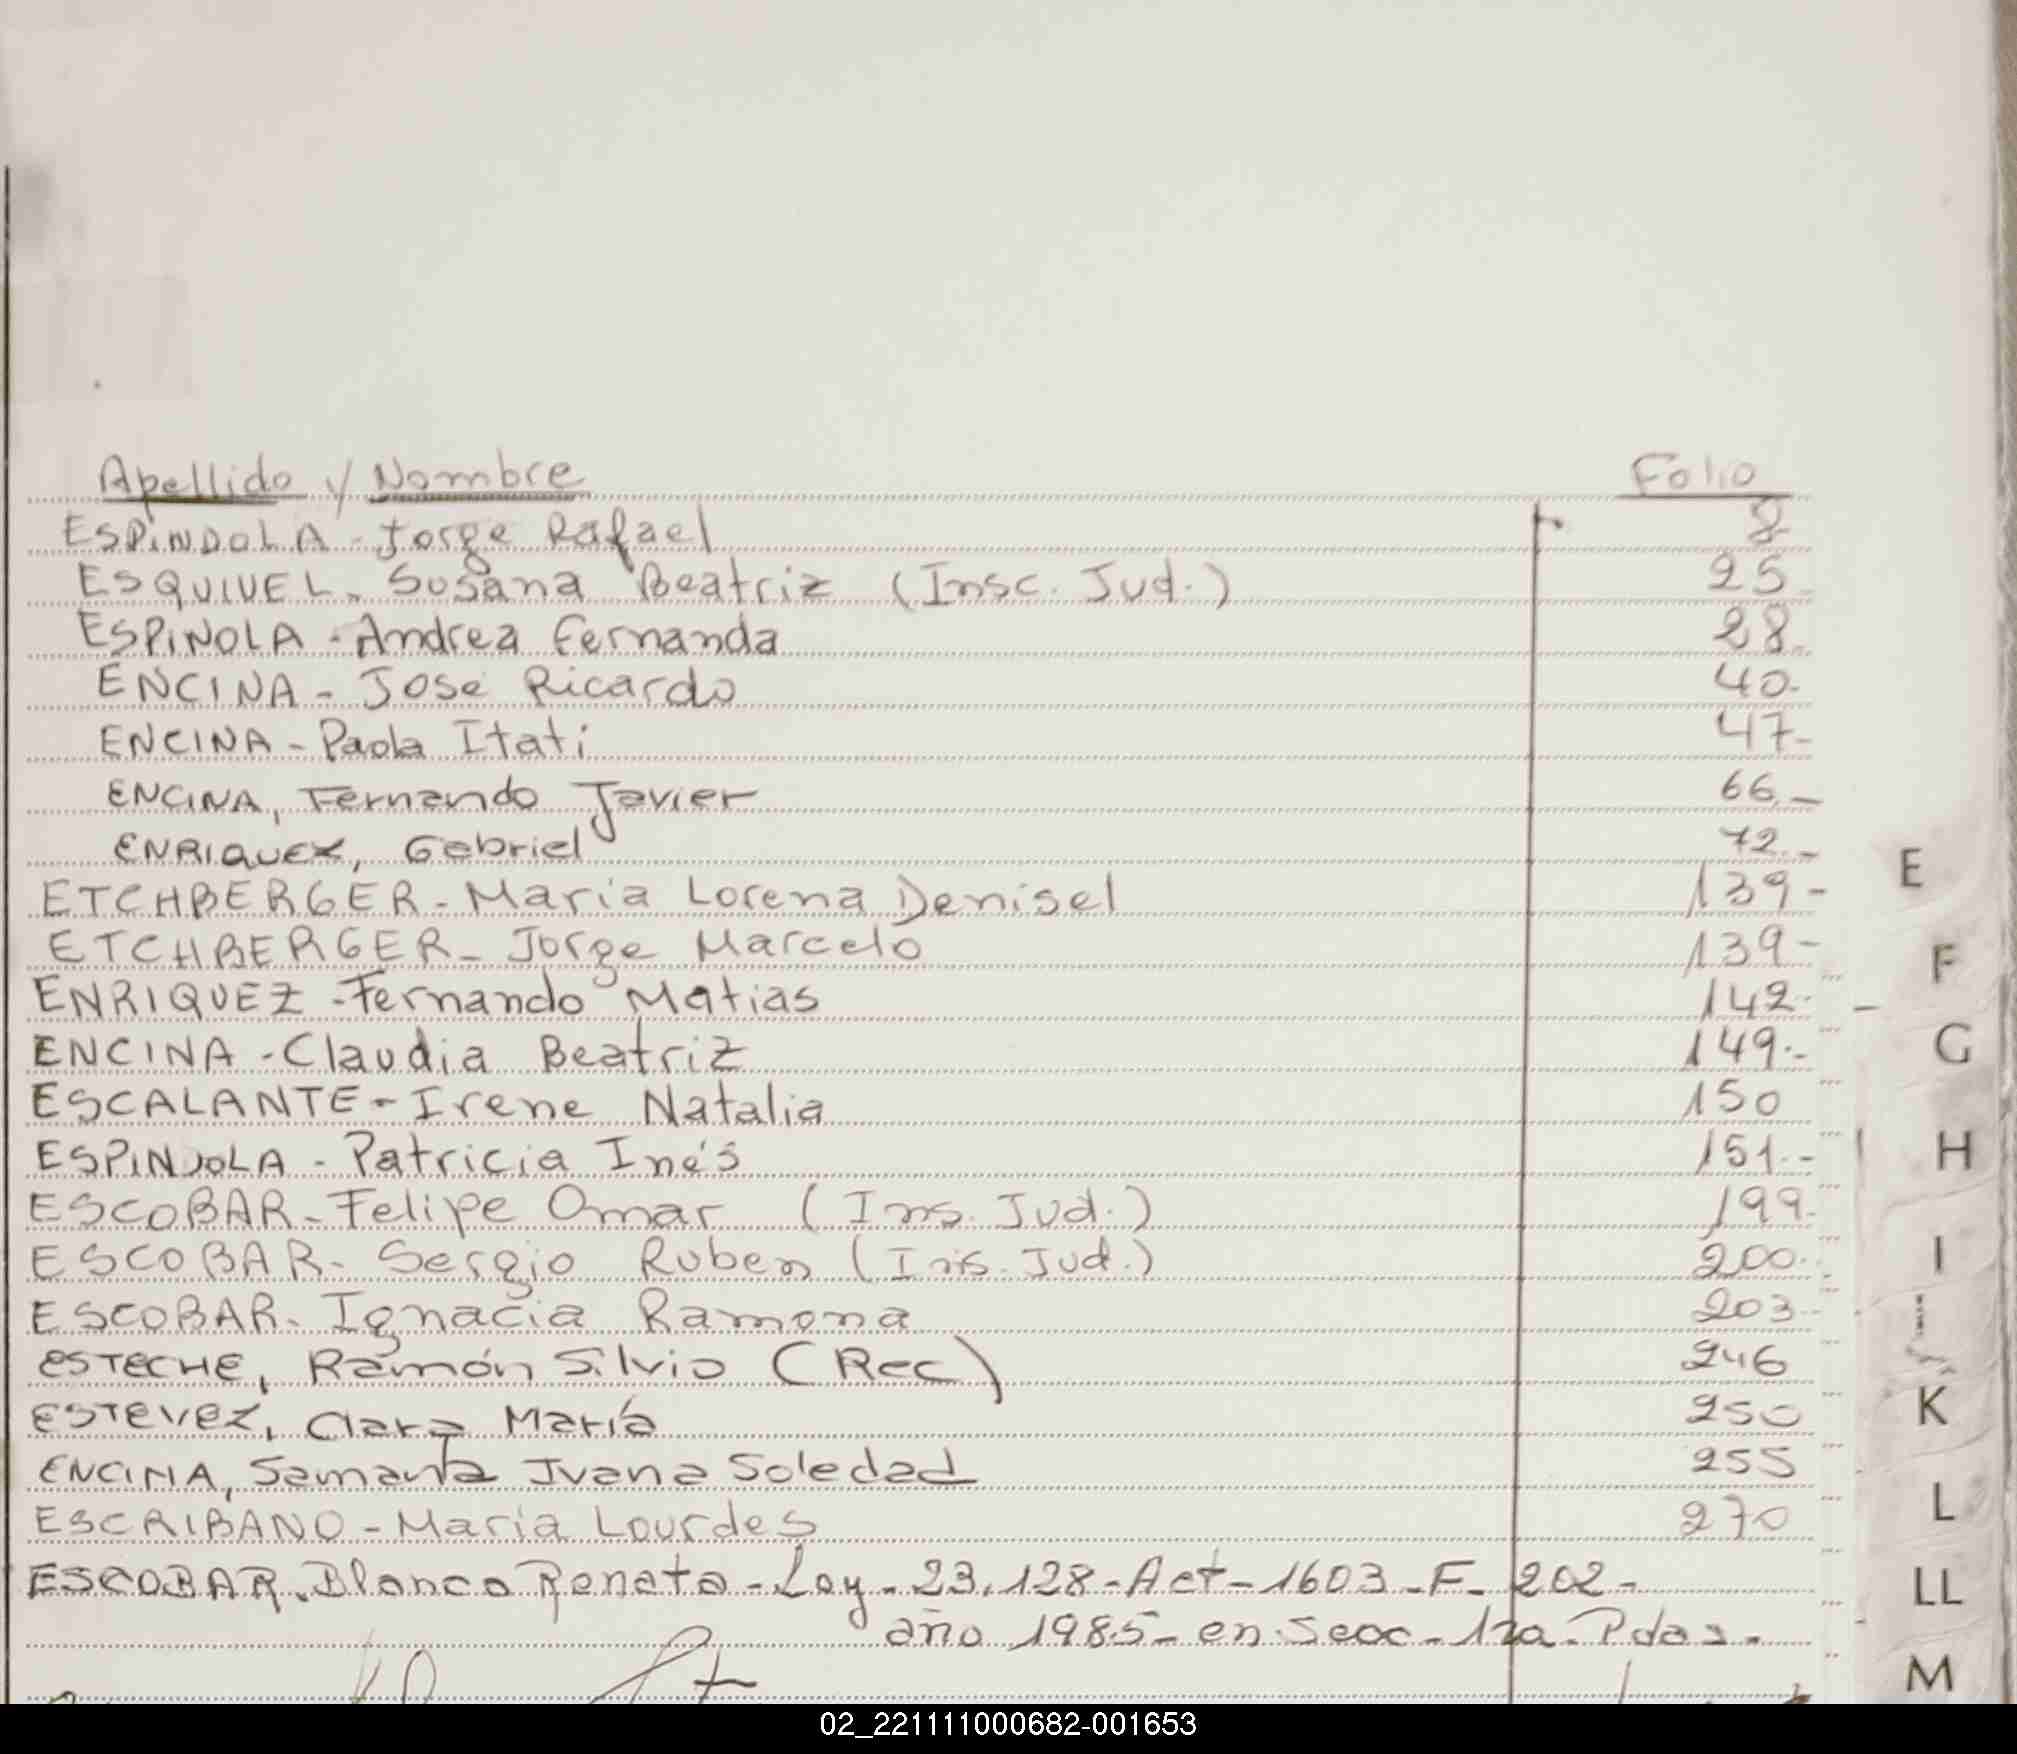 Apellido y Nombre Folio
ESPINDOLA - Jorge Rafael 8
ESQUIVEL - Susana Beatriz (Insc. Jud.) 25
ESPINOLA - Andrea Fernanda 28.
ENCINA - José Ricardo 40.
ENCINA - Paola Itati 47-
ENCINA, Fernando Javier 66.-
ENRIQUEZ, Gabriel 72.-
ETCHBERGER - Maria Lorena Denisel 139-
ETCHBERGER - Jorge Marcelo 139-
ENRIQUEZ - Fernando Matias 142.-
ENCINA - Claudia Beatriz 149.-
ESCALANTE - Irene Natalia 150
ESPINDOLA - Patricia Inés 151.-
ESCOBAR - Felipe Omar (Ins. Jud.) 199.
ESCOBAR - Sergio Ruben (Ins. Jud.) 200.
ESCOBAR - Ignacia Ramona 203-
ESTECHE, Ramón Silvio (Rec) 246
ESTEVEZ, Clara María 250
ENCINA, Samanta Ivana Soledad 255
ESCRIBANO - Maria Lourdes 270
ESCOBAR. Blanca Renata - Ley - 23.128 - Act - 1603 - F - 202 -
año 1985 - en Secc - 1ra - Pdas -
E
F
G
H
I
J
K
L
LL
M
02_221111000682-001653